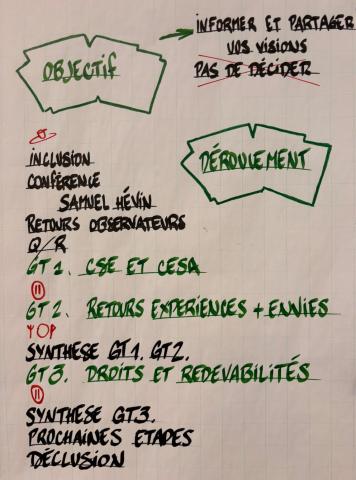 INFORMER ET PARTAGER
VOS VISIONS
PAS DE DÉCIDER
OBJECTIF
DÉROULEMENT
INCLUSION
CONFÉRENCE
SAMUEL HÉVIN
RETOURS OBSERVATEURS
Q/R
GT 1. CSE ET CESA
GT 2. RETOURS EXPERIENCES + ENVIES
TOP
SYNTHESE GT1. GT2.
GT3. DROITS ET REDEVABILITÉS
SYNTHESE GT3.
PROCHAINES ETAPES
DÉCLUSION